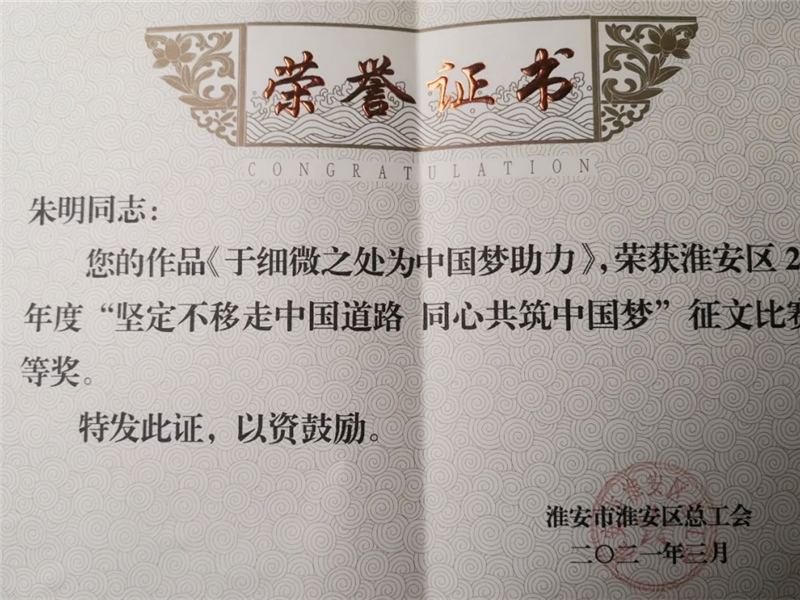 荣誉证书
CONGRATULATION
朱明同志：
您的作品《于细微之处为中国梦助力》，荣获淮安区2
年度“坚定不移走中国道路 同心共筑中国梦”征文比赛
等奖。
特发此证，以资鼓励。
淮安市淮安区总工会
二〇二一年三月